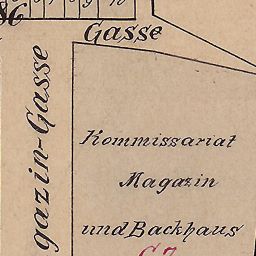 86
Gasse
gazin-Gasse
Kommissariat
Magazin
und Backhaus
67